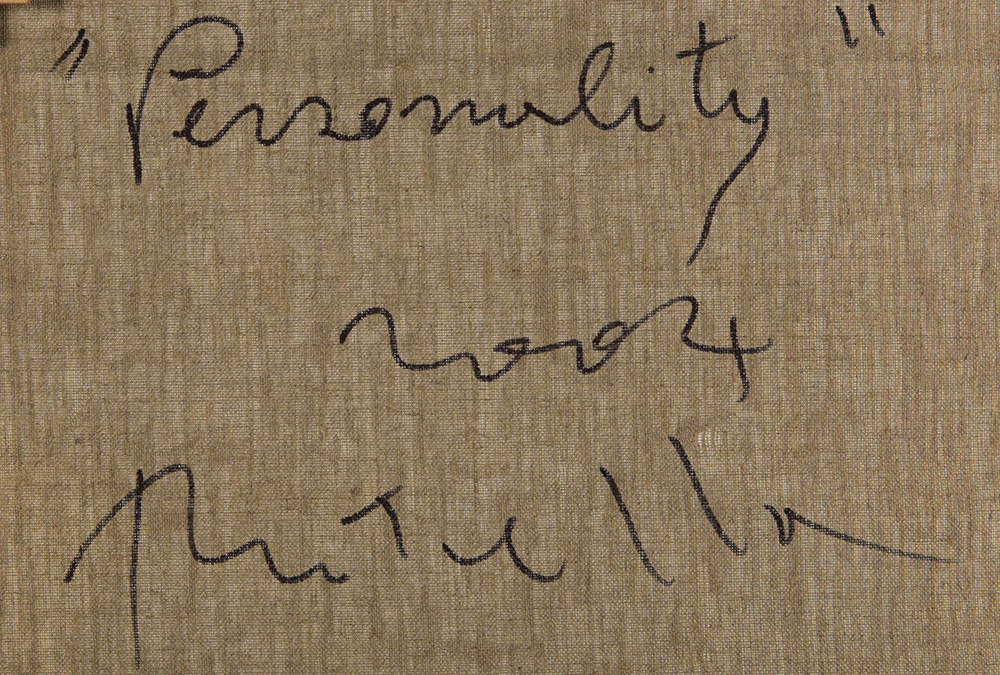 "Personality"
2004
Rotella